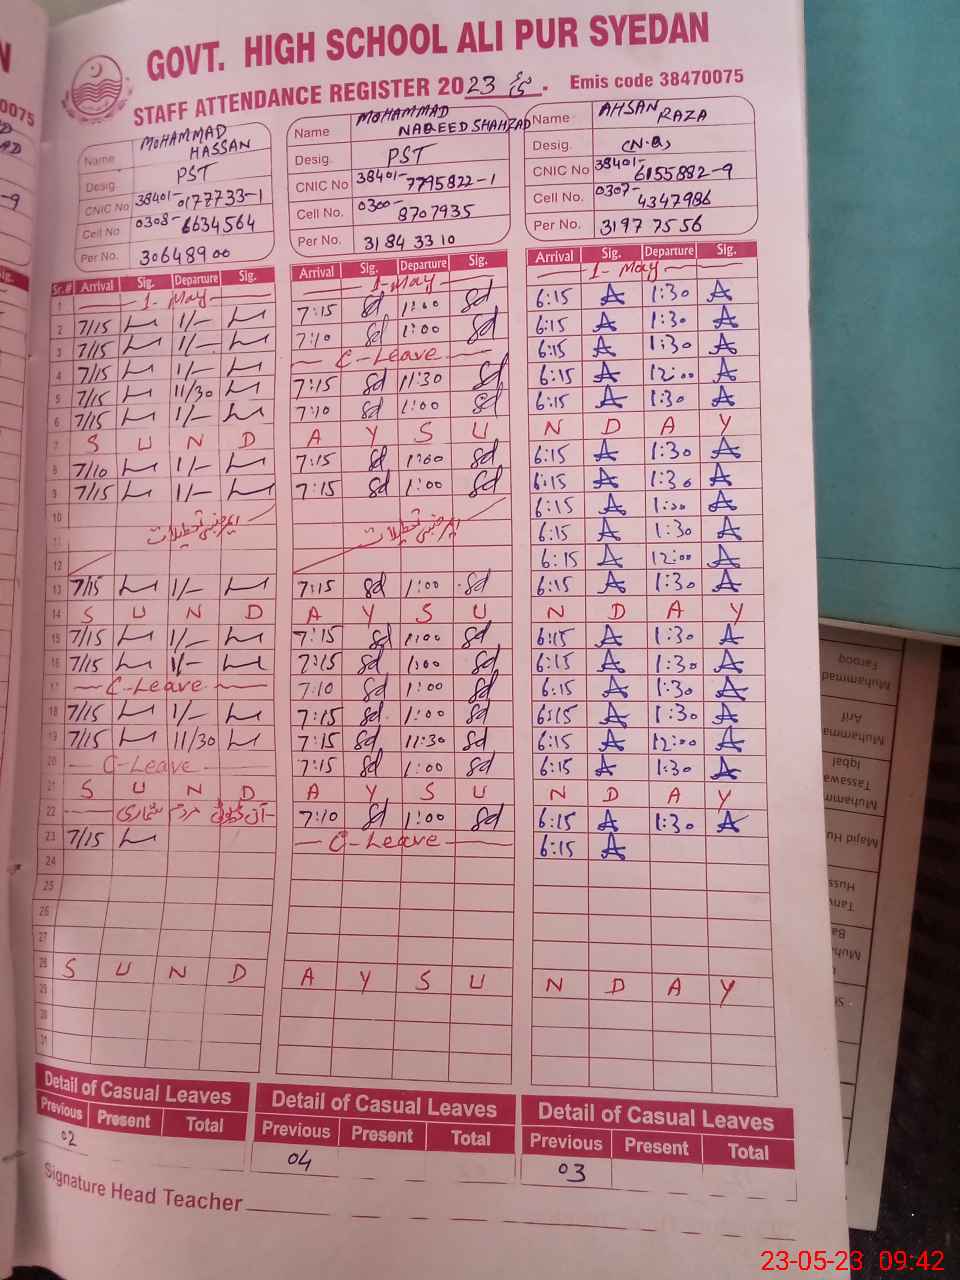 GOVT. HIGH SCHOOL ALI PUR SYEDAN
STAFF ATTENDANCE REGISTER 2023 مئی. Emis code 38470075
Name MOHAMMAD HASSAN
Desig. PST
CNIC No 38401-0177733-1
Cell No. 0308-6634564
Per No. 30648900
Name MOHAMMAD NAQEED SHAHZAD
Desig. PST
CNIC No 38401-7795822-1
Cell No. 0300-8707935
Per No. 31843310
Name AHSAN RAZA
Desig. (N.Q)
CNIC No 38401-6155882-9
Cell No. 0307-4347986
Per No. 31977556
Sr.# Arrival Sig. Departure Sig. Arrival Sig. Departure Sig. Arrival Sig. Departure Sig.
1 1-May 1-May 1-May
2 7/15 1/- 7:15 Sd 1:00 Sd 6:15 A 1:30 A
3 7/15 1/- 7:10 Sd 1:00 Sd 6:15 A 1:30 A
4 7/15 1/- C-Leave 6:15 A 1:30 A
5 7/15 11/30 7:15 Sd 11:30 Sd 6:15 A 12:00 A
6 7/15 1/- 7:10 Sd 1:00 Sd 6:15 A 1:30 A
7 S U N D A Y S U N D A Y
8 7/10 1/- 7:15 Sd 1:00 Sd 6:15 A 1:30 A
9 7/15 1/- 7:15 Sd 1:00 Sd 6:15 A 1:30 A
10 6:15 A 1:00 A
11 ایمرجنسی تعطیلات ایمرجنسی تعطیلات 6:15 A 1:30 A
12 6:15 A 12:00 A
13 7/15 1/- 7:15 Sd 1:00 Sd 6:15 A 1:30 A
14 S U N D A Y S U N D A Y
15 7/15 1/- 7:15 Sd 1:00 Sd 6:15 A 1:30 A
16 7/15 1/- 7:15 Sd 1:00 Sd 6:15 A 1:30 A
17 C-Leave 7:10 Sd 1:00 Sd 6:15 A 1:30 A
18 7/15 1/- 7:15 Sd 1:00 Sd 6:15 A 1:30 A
19 7/15 11/30 7:15 Sd 11:30 Sd 6:15 A 12:00 A
20 C-Leave 7:15 Sd 1:00 Sd 6:15 A 1:30 A
21 S U N D A Y S U N D A Y
22 مردم شماری 7:10 Sd 1:00 Sd 6:15 A 1:30 A
23 7/15 C-Leave 6:15 A
24
25
26
27
28 S U N D A Y S U N D A Y
29
30
31
Detail of Casual Leaves Detail of Casual Leaves Detail of Casual Leaves
Previous Present Total Previous Present Total Previous Present Total
02 04 03
Signature Head Teacher
Muhammad
Farooq
Arif
Iqbal
Majid Hu
23-05-23 09:42